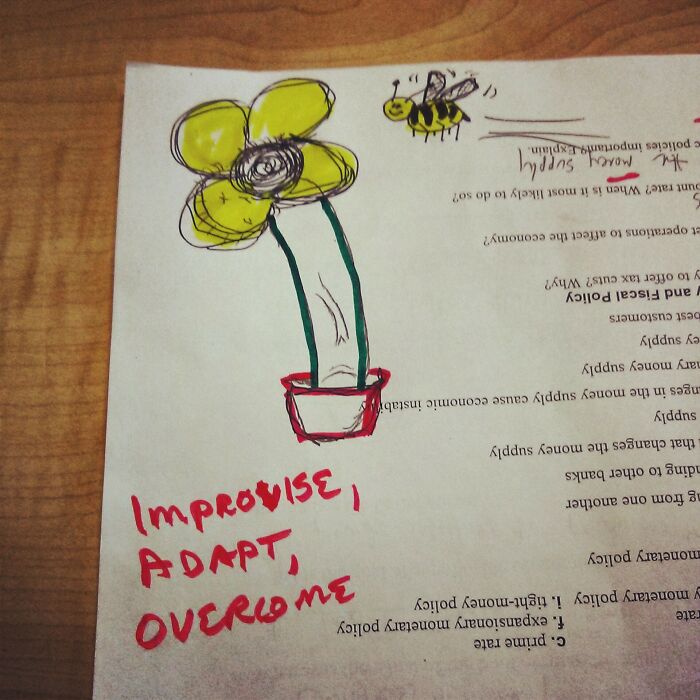 IMPROVISE,
ADAPT,
OVERCOME
rate c. prime rate
y monetary policy f. expansionary monetary policy
monetary policy i. tight-money policy
ng from one another
nding to other banks
that changes the money supply
supply
nges in the money supply cause economic instability
nary money supply
ey supply
best customers
y and Fiscal Policy
y to offer tax cuts? Why?
et operations to affect the economy?
nt rate? When is it most likely to do so?
the money supply
c policies important? Explain.